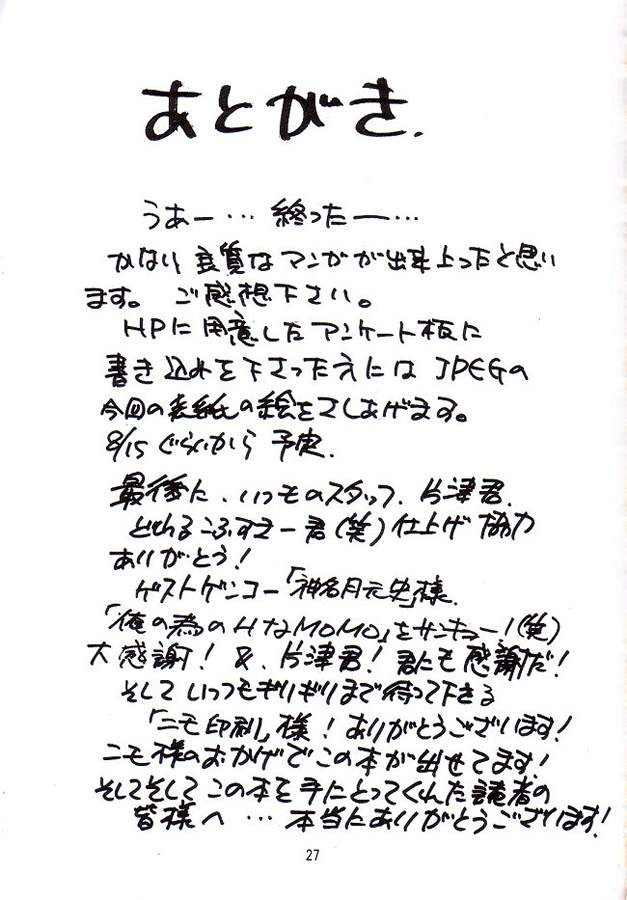 あとがき.
うあー… 終ったー…
かない 良質なマンガが出来上ったと思い
ます。 ご感想下さい。
HPに用意したアンケート板に
書き込みを下さった方にはJPEGの
今回の表紙の絵をさしあげます。
8/15ぐらいから 予定.
最後に、いつものスタッフ、片津君.
とれるこふすきー君(笑)仕上げ協力
ありがとう!
ゲストゲンコー「神名月元史」様.
「俺の為のHなMOMO」をサンキュー!(笑)
大感謝! &、片津君! 君にも感謝だ!
そしていつもギリギリまで待って下さる
「ニモ印刷」様! ありがとうございます!
ニモ様のおかげでこの本が出せてます!
そしてそしてこの本を手にとってくれた読者の
皆様へ … 本当にありがとうございます!
27